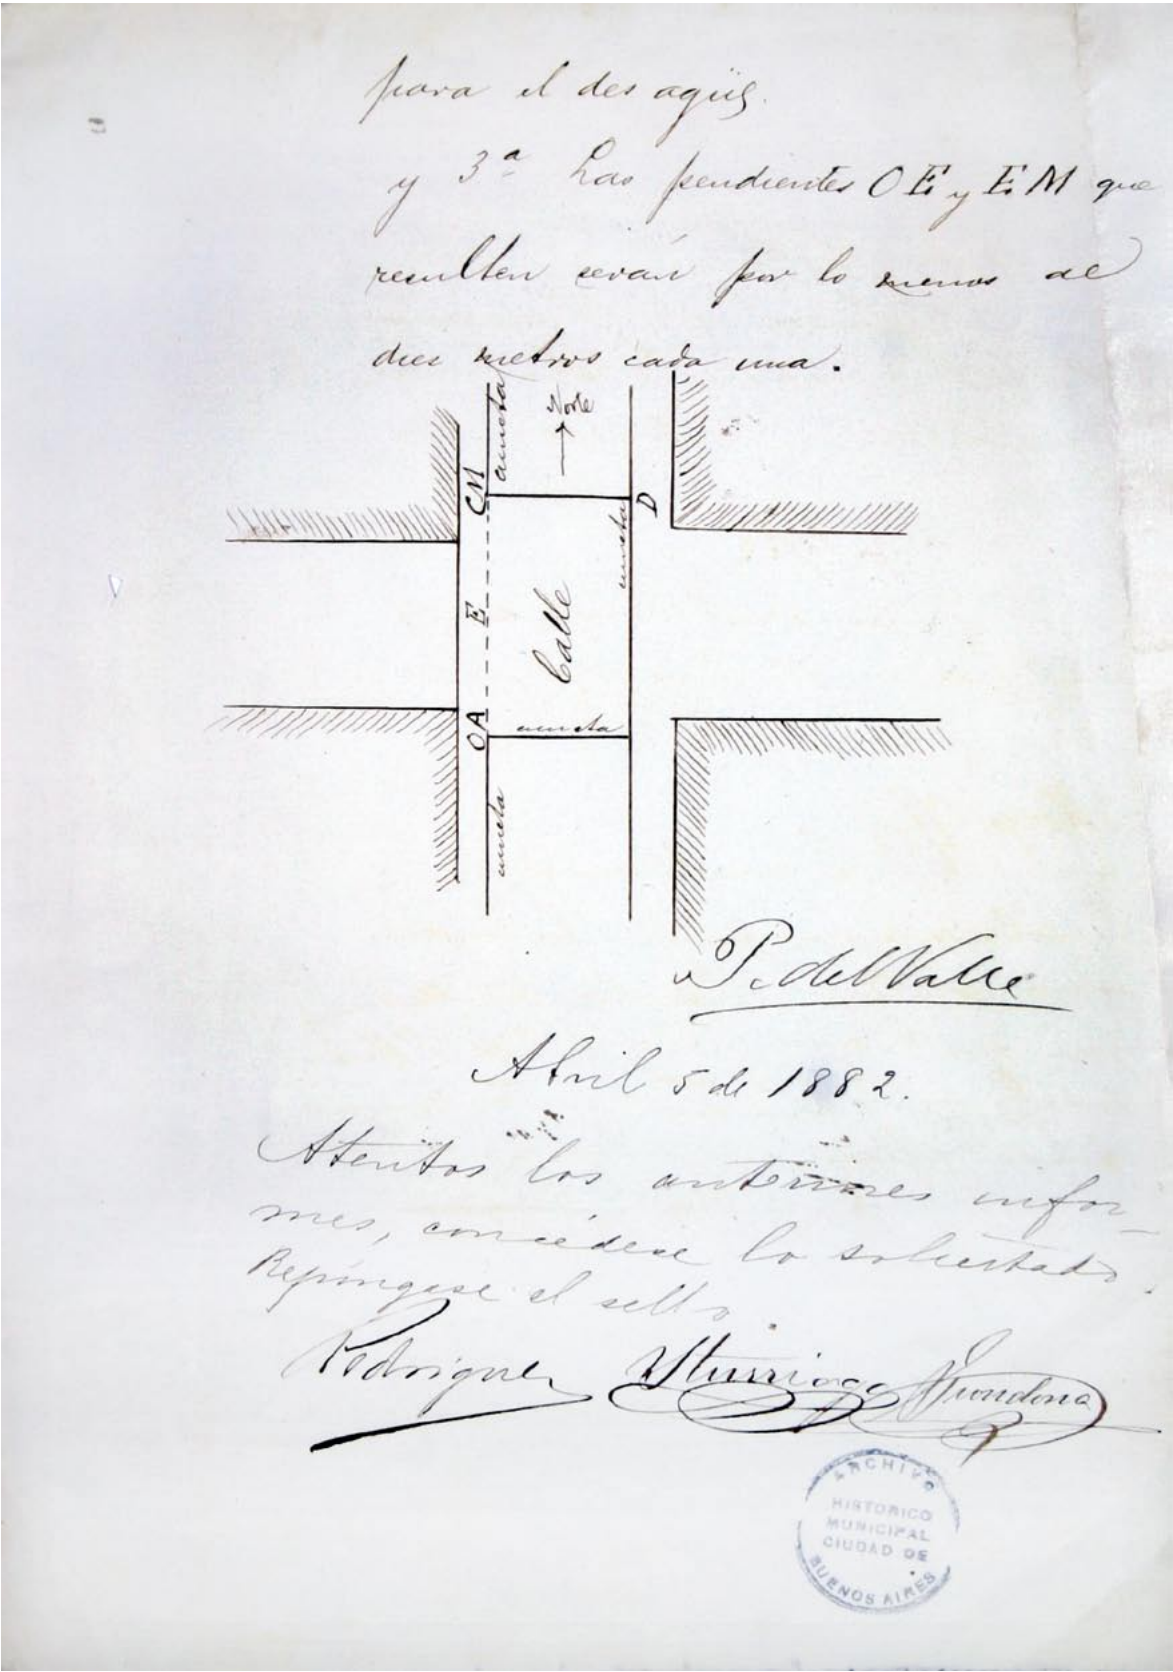 para el des agüe.
y 3ª Las pendientes OE y EM que
resulten serán por lo menos de
diez metros cada una.
Norte
cuneta
CM
D
cuneta
E
Calle
OA
cuneta
cuneta
P. del Valle
Abril 5 de 1882.
Atentos los anteriores infor-
mes, concédese lo solicitado
Repóngase el sello.
Rodriguez
ARCHIVO
HISTORICO
MUNICIPAL
CIUDAD DE
BUENOS AIRES